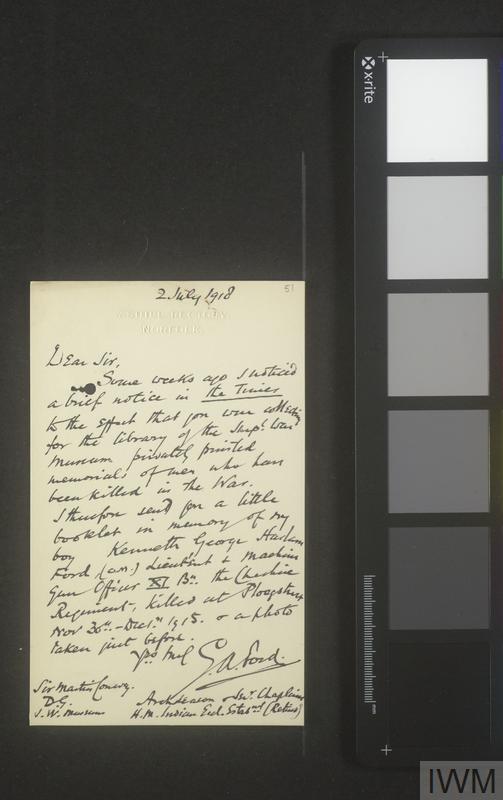 51
2 July 1918
RECTORY,
NORFOLK.
Dear Sir,
Some weeks ago I noticed
a brief notice in the Times
to the effect that you were collecting
for the library of the Impl. War
Museum privately printed
memorials of men who have
been killed in the War.
I therefore send you a little
booklet in memory of my
boy Kenneth George Haslam
Ford, Lieutenant & Machine
Gun Officer XI Bn. the Cheshire
Regiment, killed at Ploegsteert
Nov 30th - Dec 1st 1915. & a photo
taken just before.
Yrs
G.A. Ford.
Sir Martin Conway.
D.G.
I. W. Museum
Archdeacon & Senr. Chaplain
H.M. Indian Eccl. Estabmt (Retired)
x-rite
mm
IWM